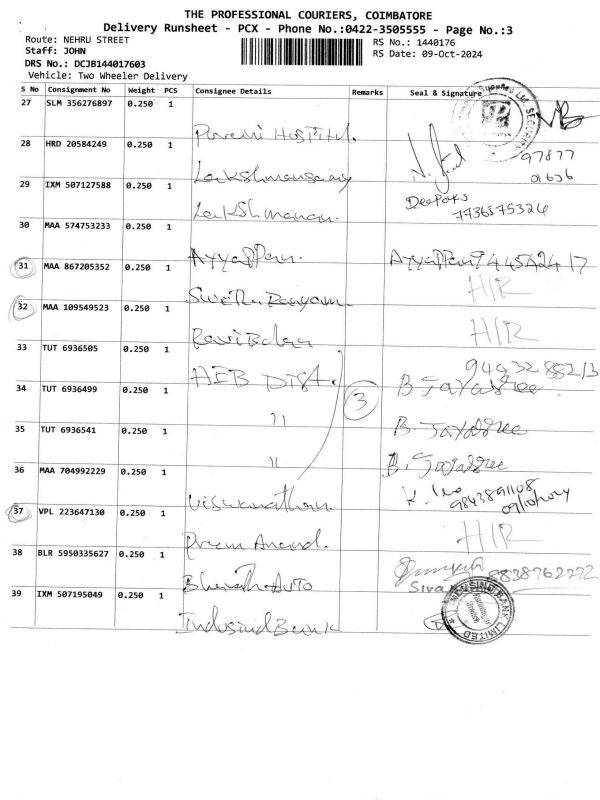 THE PROFESSIONAL COURIERS, COIMBATORE
Delivery Runsheet - PCX - Phone No.:0422-3505555 - Page No.:3
Route: NEHRU STREET
RS No.: 1440176
Staff: JOHN
RS Date: 09-Oct-2024
DRS No.: DCJB144017603
Vehicle: Two Wheeler Delivery
S No Consignment No Weight PCS Consignee Details Remarks Seal & Signature
27 SLM 356276897 0.250 1 Hospital.
28 HRD 20584249 0.250 1 97877
29 IXM 507127588 0.250 1 Lakshmanan. Deepak
7736575326
30 MAA 574753233 0.250 1 Ayyappan. Ayyappan 9445424217
31 MAA 867205352 0.250 1 H/R
32 MAA 109549523 0.250 1 H/R
33 TUT 6936505 0.250 1 HEB Dist. B. Jayabree
34 TUT 6936499 0.250 1 " 3 B. Jayabree
35 TUT 6936541 0.250 1 " B. Jayabree
36 MAA 704992229 0.250 1 Viswanathan. 9843891108
09/10/2024
37 VPL 223647130 0.250 1 Prem Anand. H/R
38 BLR 5950335627 0.250 1 Bharath Auto 9838762272
39 IXM 507195049 0.250 1 Indusind Bank INDUSIND BANK LIMITED